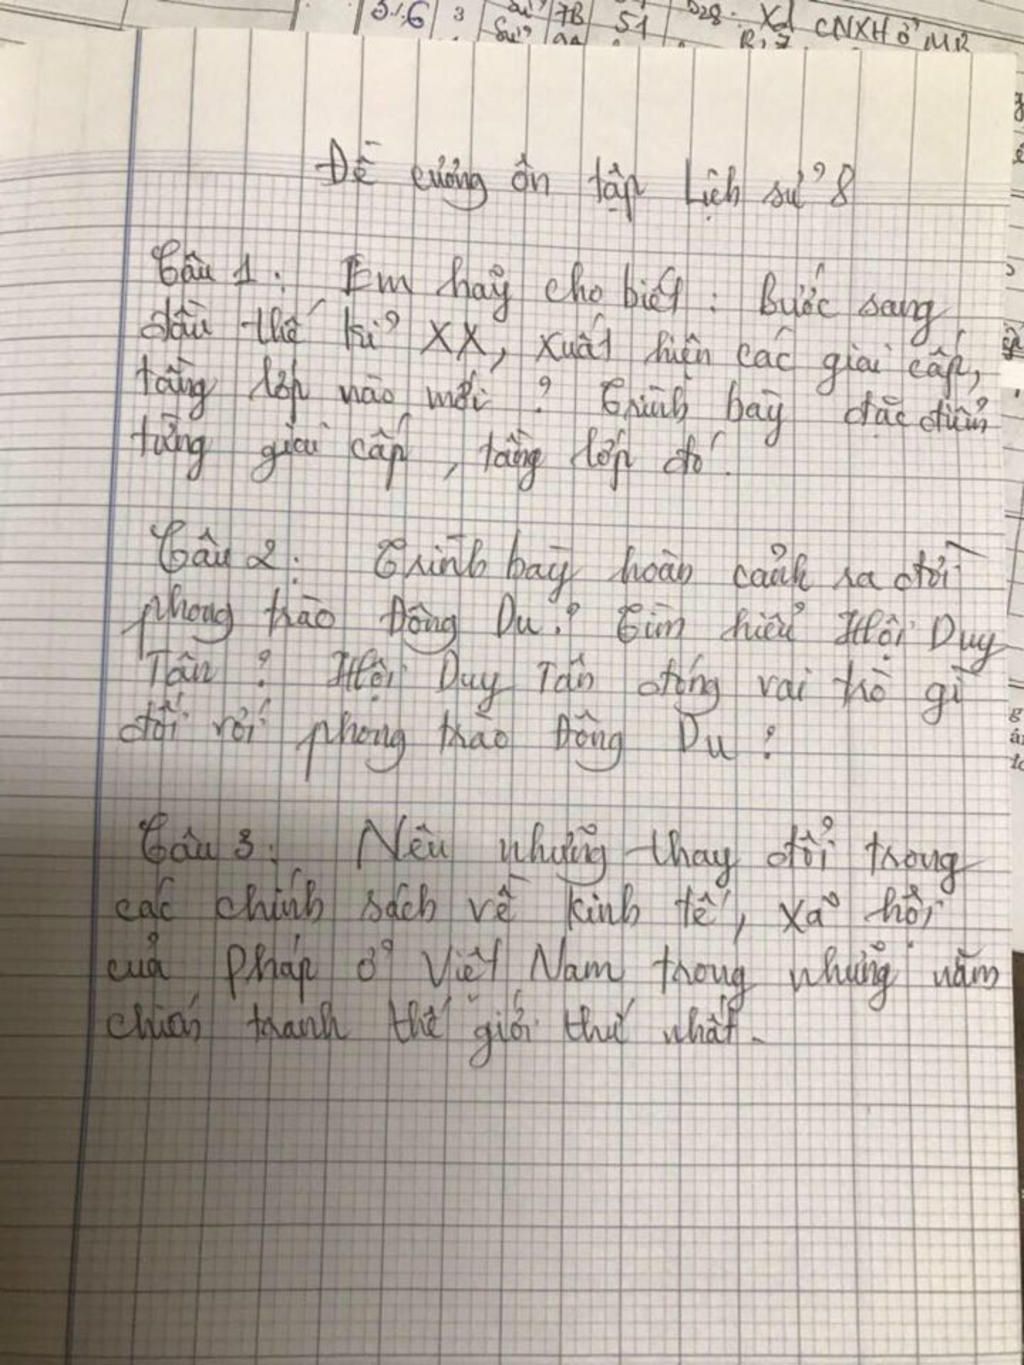 51.6 3 Sử 7B 51 D28: XD CNXH ở MR
Đề cương ôn tập Lịch sử 8
Câu 1: Em hãy cho biết: Bước sang
đầu thế kỉ XX, xuất hiện các giai cấp,
tầng lớp nào mới? Trình bày đặc điểm
từng giai cấp, tầng lớp đó.
Câu 2: Trình bày hoàn cảnh ra đời
phong trào Đông Du? Tìm hiểu Hội Duy
Tân? Hội Duy Tân đóng vai trò gì
đối với phong trào Đông Du?
Câu 3: Nêu những thay đổi trong
các chính sách về kinh tế, xã hội
của Pháp ở Việt Nam trong những năm
chiến tranh thế giới thứ nhất.